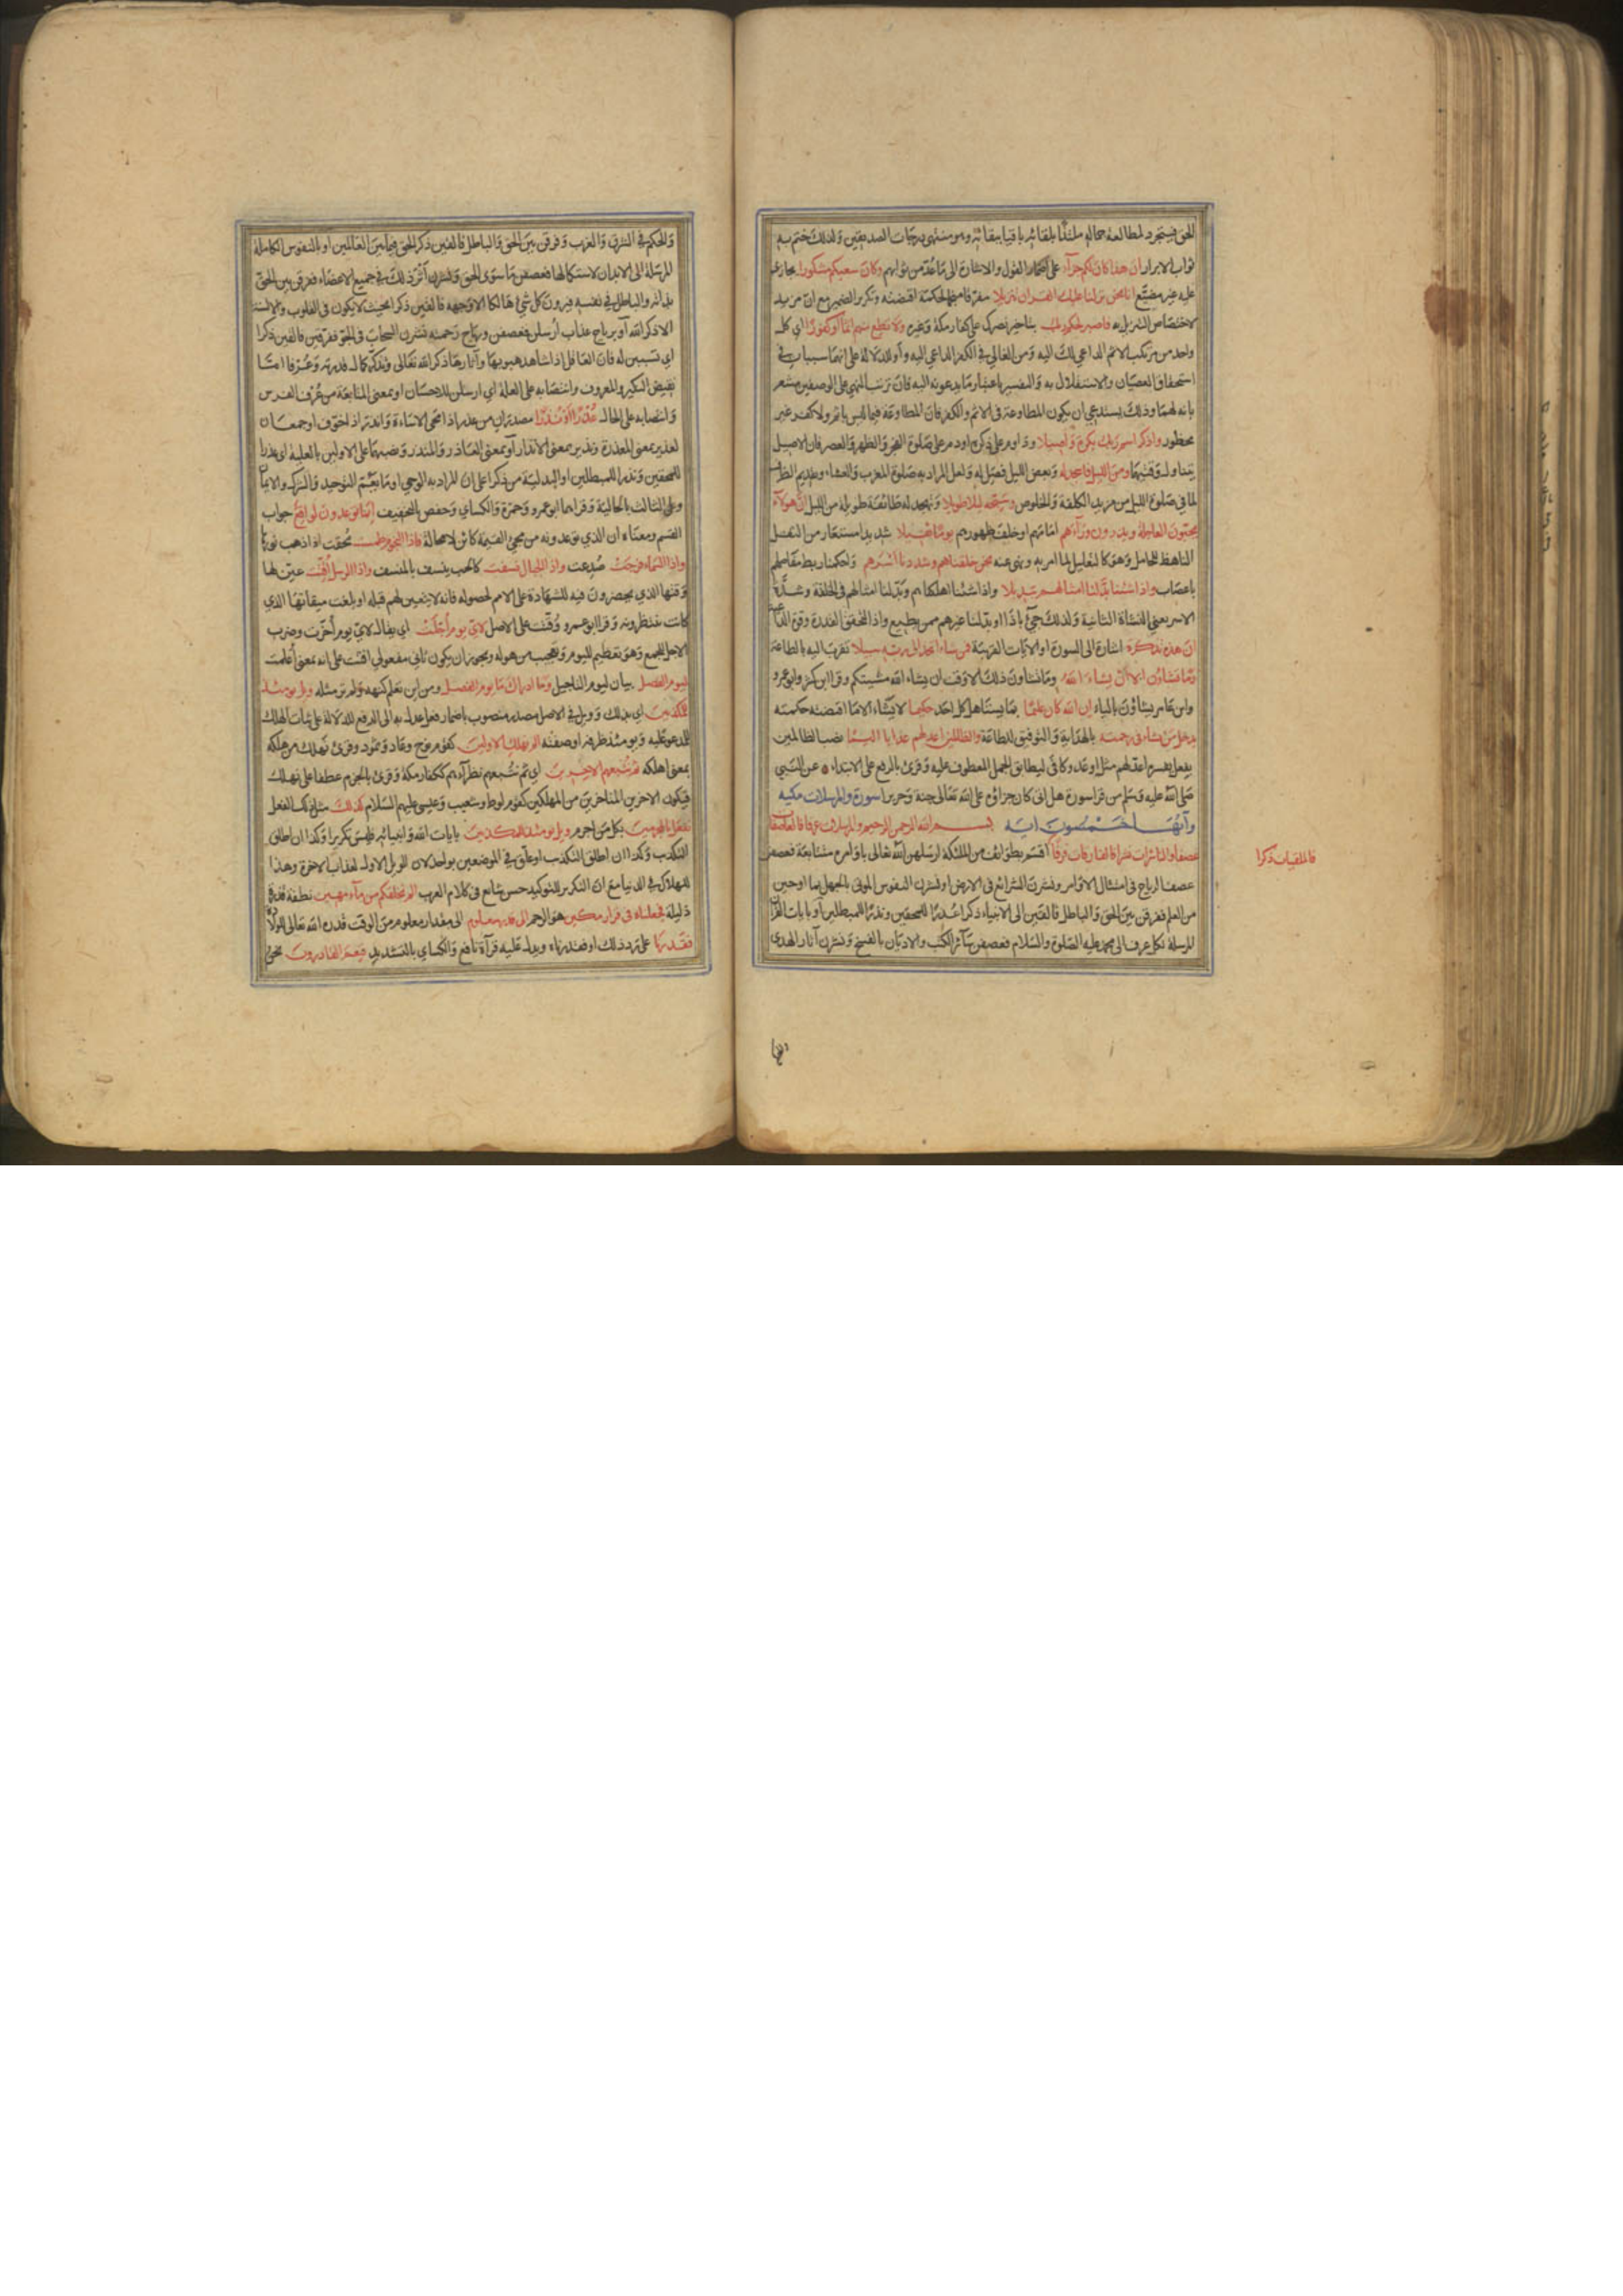 الحق فيتجرد لمطالعة جماله ملتذا بلقائه باقيا ببقائه وهو منتهى درجات الصديقين ولذلك ختم به
ثواب الابرار ان هذا كان لكم جزآء على اضمار القول والاشارة الى ما عُدّ من ثوابهم وكان سعيكم مشكورا مجازى
عليه غير مضيّع انا نحن نزلنا عليك القران تنزيلا مفرّقا منجما لحكمة اقتضته وتكرير الضمير مع ان مزيد
لاختصاص التنزيل به فاصبر لحكم ربك بتاخير نصرك على كفار مكة وغيره ولا تطع منهم اثما او كفورا اي كل
واحد من مرتكب الاثم الداعي لك اليه ومن الغالي في الكفر الداعي اليه وأو للدلالة على انهما سيان في
استحقاق العصيان والاستقلال به والتقسيم باعتبار ما يدعونه اليه فان ترتب النهي على الوصفين مشعر
بانه لهما وذلك يستدعي ان يكون المطاوعة في الاثم والكفر فان المطاوعة فيما ليس باثم ولا كفر غير
محظور واذكر اسم ربك بكرة وأصيلا وداوم على ذكره او دم على صلوة الفجر والظهر والعصر فان الاصيل
يتناول وقتيهما ومن الليل فاسجد له وبعض الليل فصلّ له ولعل المراد به صلوة المغرب والعشاء وتقديم الظرف
لما في صلوة الليل من مزيد الكلفة والخلوص وسبّحه ليلا طويلا وتهجد له طائفة طويلة من الليل انّ هولآء
يحبّون العاجلة ويذرون ورآءهم امامهم او خلف ظهورهم يومًا ثقيلا شديدا مستعار من الثقل
الباهظ للحامل وهو كالتعليل لما امر به ونهى عنه نحن خلقناهم وشددنا أسرهم واحكمنا ربط مفاصلهم
باعصاب واذا شئنا بدّلنا امثالهم تبديلا واذا شئنا اهلكناهم وبدّلنا امثالهم في الخلقة وشدّة
الاسر يعني النشأة الثانية ولذلك جيء باذا او بدّلنا غيرهم ممن يطيع واذا لتحقق القدرة وقوة الداعية
انّ هذه تذكرة اشارة الى السورة او الايات القريبة فمن شاء اتخذ الى ربه سبيلا تقرّب اليه بالطاعة
وما تشاؤن الا أن يشاء الله وما تشاون ذلك الا وقت ان يشاء الله مشيتكم وقرا ابن كثير وابو عمرو
وابن عامر يشاؤن بالياء إن الله كان عليمًا بما يستاهل كل احد حكيما لا يشاء الا ما اقتضته حكمته
يدخل من يشاء في رحمته بالهداية والتوفيق للطاعة والظالمين اعد لهم عذابا اليمًا نصب الظالمين
بفعل يفسره اعد لهم مثل اوعد وكافى ليطابق الجمل المعطوف عليه وقرئ بالرفع على الابتداء عن النبي
صلى الله عليه وسلم من قرا سورة هل اتى كان جزاؤه على الله تعالى جنة وحريرا سورة والمرسلات مكيه
وآيُها خمسون ايه بسم الله الرحمن الرحيم والمرسلات عرفا فالعاصفات
عصفا والناشرات نشرا فالفارقات فرقًا اقسم بطوائف من الملئكة ارسلهن الله تعالى باوامره متتابعة فعصفن
فالملقيات ذكرا
عصف الرياح في امتثال الاوامر ونشرن الشرائع في الارض او نشرن النفوس الموتى بالجهل بما اوحين
من العلم ففرقن بين الحق والباطل فالقين الى الانبياء ذكرا عُذرًا للمحقين ونذرًا للمبطلين أو بايات القرآن
المرسلة بكل عرف الى محمد عليه الصلوة والسلام فعصفن سائر الكتب والاديان بالنسخ ونشرن آثار الهدى
والحكم في الشرق والغرب وفرقن بين الحق والباطل فالقين ذكر الحق فيما بين العالمين او بالنفوس الكاملة
المرسلة الى الابدان لاستكمالها فعصفن ما سوى الحق ونشرن أثر ذلك في جميع الاعضاء ففرقن بين الحق
بذاته والباطل في نفسه فيرون كل شيء هالكا الا وجهه فالقين ذكرا بحيث لا يكون في القلوب والالسنة
الا ذكر الله أو برياح عذاب ارسلن فعصفن ورياح رحمة نشرن السحاب في الجوّ ففرّقن فالقين ذكرا
اي تسببن له فان العاقل اذا شاهد هبوبها وآثارها ذكر الله تعالى وتذكّر كمال قدرته وعُرفا امّا
نقيض النكير والمعروف وانتصابه على العلة اي ارسلن للاحسان او بمعنى المتابعة من عُرف الفرس
وانتصابه على الحال عُذرًا أو نُذرًا مصدران من عذر اذا محى الاساءة وانذر اذا خوّف او جمعان
لعذير بمعنى المعذرة ونذير بمعنى الانذار أو بمعنى العاذر والمنذر ونصبهما على الاولين بالعلية اى عذرا
للمحقين ونذرا للمبطلين او البدلية من ذكرا على ان المراد به الوحي او ما يعمّ التوحيد والشرك والايمان
وعلى الثالث بالحالية وقراهما ابو عمرو وحمزة والكساي وحفص بالتخفيف إنّما توعدون لواقع جواب
القسم ومعناه ان الذي توعدونه من مجئ القيمة كائن لا محالة فاذا النجوم طمست مُحقت او اذهب نورها
واذا السماء فرجت صُدِعت واذا الجبال نسفت كالحب ينسف بالمنسف واذا الرسل أقتت عيّن لها
وقتها الذي يحضرون فيه للشهادة على الامم لحصوله فانه لا يتعين لهم قبله او بلغت ميقاتها الذي
كانت تنتظرونه وقرا ابو عمرو وُقّتت على الاصل لايّ يوم أجلت اي يقال لايّ يوم أُخّرت وضرب
الاجل للجمع وهو تعظيم لليوم وتعجيب من هوله ويجوز ان يكون ثاني مفعولي اقتت على انه بمعنى أُعلمت
ليوم الفصل بيان ليوم التاجيل وما ادراك ما يوم الفصل ومن اين تعلم كنهه ولم تر مثله ويل يومئذ
للمكذبين اي بذلك وويل في الاصل مصدر منصوب باضمار فعل عدل به الى الرفع للدلالة على ثبات الهلك
للمدعو عليه ويومئذ ظرفه او صفته الم نهلك الاولين كقوم نوح وعاد وثمود وقرئ نَهلك من هلكه
بمعنى اهلكه ثم نتبعهم الاخرين اي ثم نتبعهم نظرآءهم ككفار مكة وقرئ بالجزم عطفا على نهلك
فيكون الاخرين المتاخرين من المهلكين كقوم لوط وشعيب وعيسى عليهم السلام كذلك مثل ذلك الفعل
نفعل بالمجرمين بكل من اجرم ويل يومئذ للمكذبين بايات الله وانبيائه فليس تكريرا وكذا ان اطلق
التكذيب وكذا ان اطلق التكذب او علّق في الموضعين بواحد لان الويل الاول لعذاب الاخرة وهذا
للهلاك في الدنيا مع انّ التكرير للتوكيد حسن شايع في كلام العرب الم نخلقكم من مآء مهين نطفة قذرة
ذليلة فجعلناه في قرار مكين هو الرحم الى قدر معلوم الى مقدار معلوم من الوقت قدره الله تعالى للولادة
فقدرنا على تردد ذلك او فقدرناه ويدل عليه قرآة نافع والكساي بالتشديد فنعم القادرون نحن